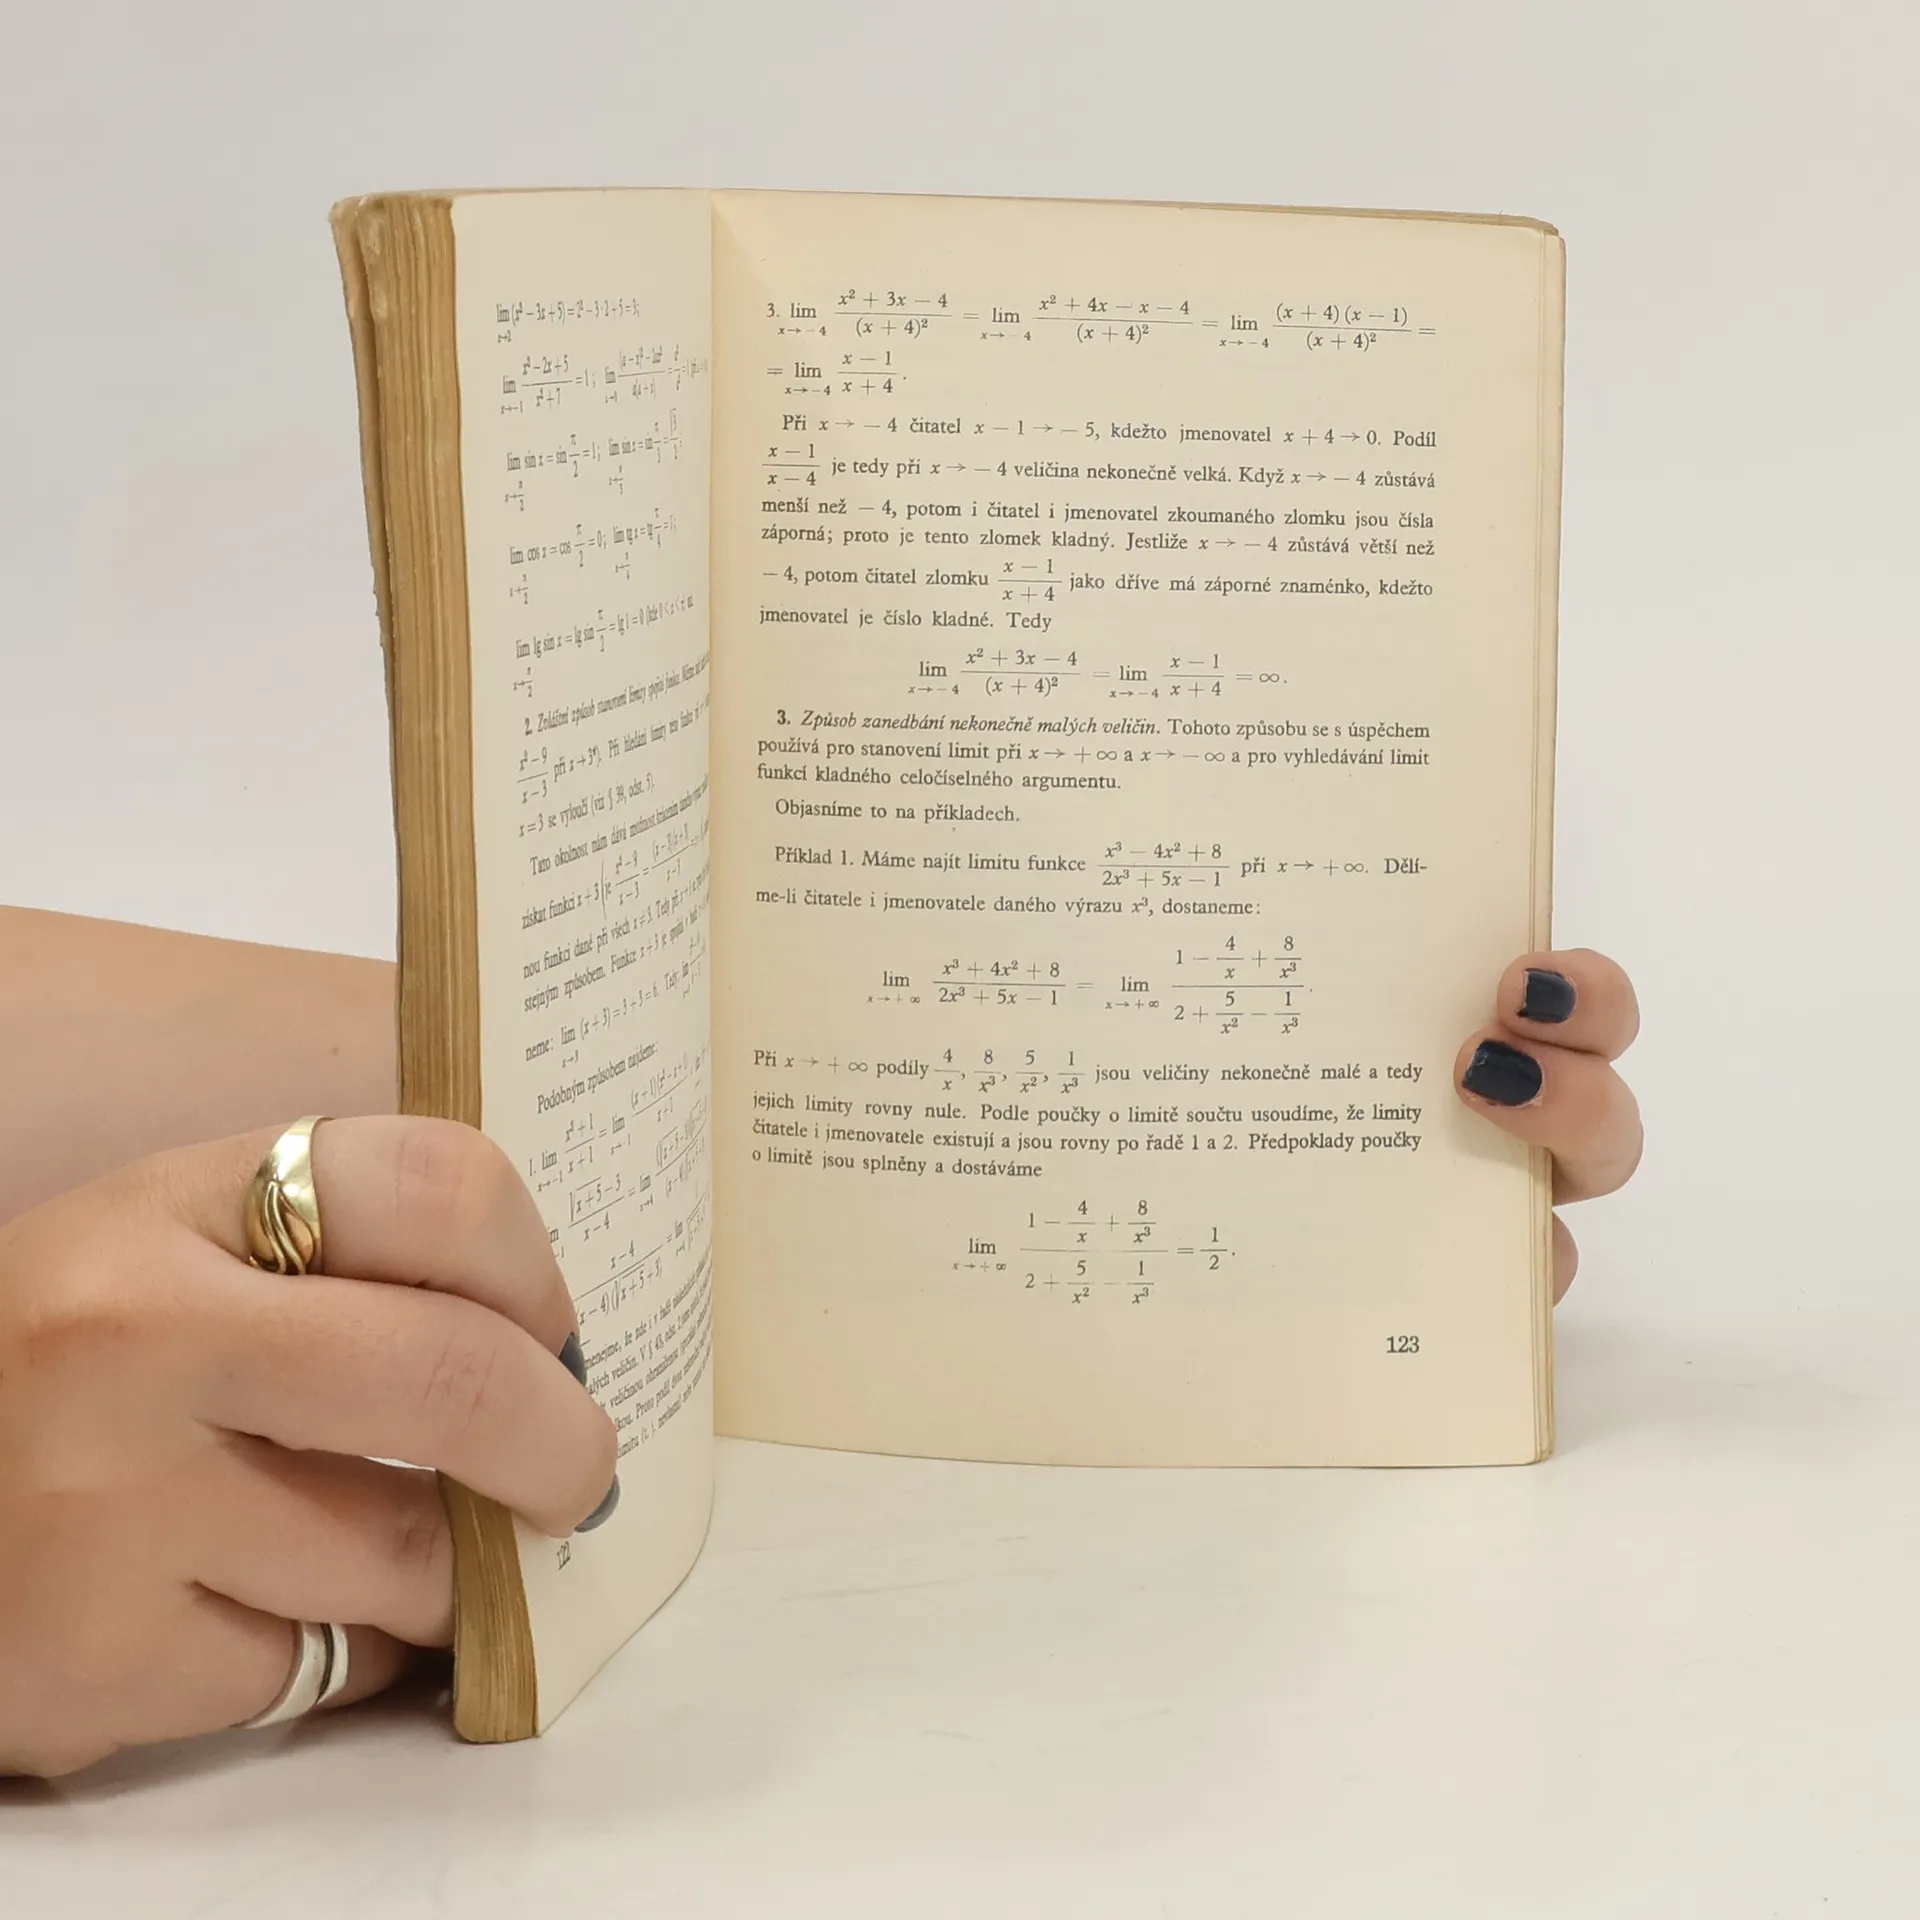 lim (x² − 3x + 5) = 2² − 3·2 + 5 = 3;
x→2
lim x² − 2x + 5 / x² + 7 = 1;
x→−1
lim sin x = sin π/2 = 1; lim sin x = sin π/3 = √3/2;
x→π/2 x→π/3
lim cos x = cos π/2 = 0; lim tg x = tg π/4 = 1;
x→π/2 x→π/4
lim lg sin x = lg sin π/2 = lg 1 = 0 (kde 0 < x < π) atd.
x→π/2
2. Zvláštní způsob stanovení limity spojité funkce.
x² − 9 / x − 3 při x → 3*). Při hledání limity této funkce
x = 3 se vyloučí (viz § 39, odst. 5).
Tato okolnost nám dává možnost krácením
získat funkci x + 3 (je x² − 9 / x − 3 = (x − 3)(x + 3) / x − 3
nou funkci dané při všech x ≠ 3. Tedy při
stejným způsobem. Funkce x + 3 je spojitá v
neme: lim (x + 3) = 3 + 3 = 6. Tedy: lim
x→3
Podobným způsobem najdeme:
1. lim x³ + 1 / x + 1 = lim (x + 1)(x² − x + 1) / x + 1
x→−1 x→−1
√x + 5 − 3 / x − 4 = lim
x→4
x − 4 / (x − 4)(√x + 5 + 3) = lim
122
3. lim x² + 3x − 4 / (x + 4)² = lim x² + 4x − x − 4 / (x + 4)² = lim (x + 4)(x − 1) / (x + 4)² =
x→−4 x→−4 x→−4
= lim x − 1 / x + 4 .
x→−4
Při x → − 4 čitatel x − 1 → − 5, kdežto jmenovatel x + 4 → 0. Podíl
x − 1 / x − 4 je tedy při x → − 4 veličina nekonečně velká. Když x → − 4 zůstává
menší než − 4, potom i čitatel i jmenovatel zkoumaného zlomku jsou čísla
záporná; proto je tento zlomek kladný. Jestliže x → − 4 zůstává větší než
− 4, potom čitatel zlomku x − 1 / x + 4 jako dříve má záporné znaménko, kdežto
jmenovatel je číslo kladné. Tedy
lim x² + 3x − 4 / (x + 4)² = lim x − 1 / x + 4 = ∞.
x→−4 x→−4
3. Způsob zanedbání nekonečně malých veličin. Tohoto způsobu se s úspěchem
používá pro stanovení limit při x → + ∞ a x → − ∞ a pro vyhledávání limit
funkcí kladného celočíselného argumentu.
Objasníme to na příkladech.
Příklad 1. Máme najít limitu funkce x³ − 4x² + 8 / 2x³ + 5x − 1 při x → + ∞. Dělí-
me-li čitatele i jmenovatele daného výrazu x³, dostaneme:
lim x³ + 4x² + 8 / 2x³ + 5x − 1 = lim 1 − 4/x + 8/x³ / 2 + 5/x² − 1/x³ .
x→+∞ x→+∞
Při x → + ∞ podíly 4/x, 8/x³, 5/x², 1/x³ jsou veličiny nekonečně malé a tedy
jejich limity rovny nule. Podle poučky o limitě součtu usoudíme, že limity
čitatele i jmenovatele existují a jsou rovny po řadě 1 a 2. Předpoklady poučky
o limitě jsou splněny a dostáváme
lim 1 − 4/x + 8/x³ / 2 + 5/x² − 1/x³ = 1/2.
x→+∞
123